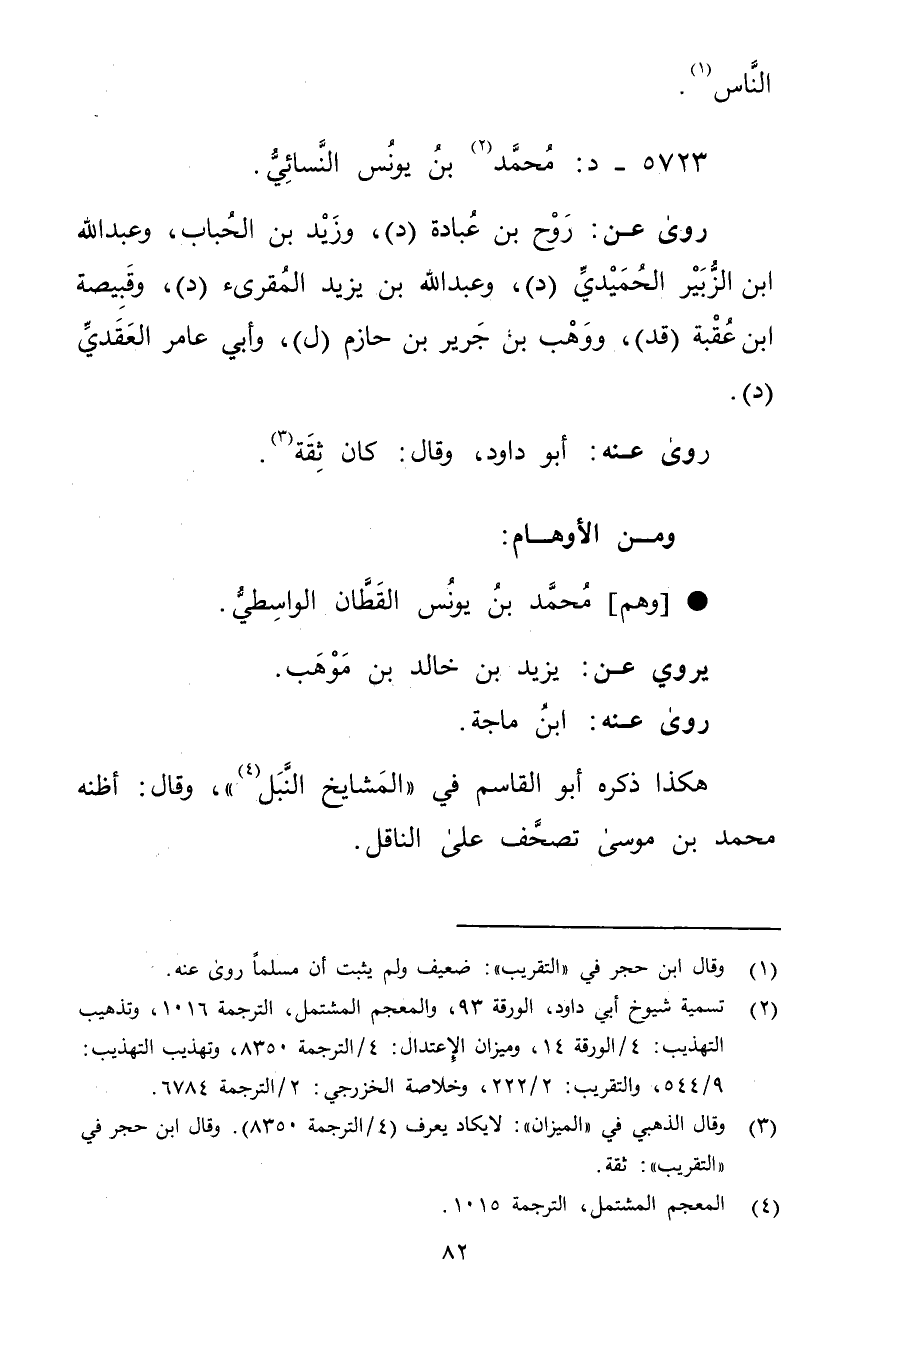 النَّاس(١).
٥٧٢٣ ـ د: مُحمَّد(٢) بنُ يونُس النَّسائِيُّ.
روىٰ عـن: رَوْح بن عُبادة (د)، وزَيْد بن الحُباب، وعبدالله
ابن الزُّبَيْر الحُمَيْديِّ (د)، وعبدالله بن يزيد المُقرىء (د)، وقَبِيصة
ابن عُقْبة (قد)، ووَهْب بن جَرير بن حازم (ل)، وأبي عامر العَقَديِّ
(د).
روىٰ عـنه: أبو داود، وقال: كان ثِقَة(٣).
ومـن الأوهـام:
● [وهم] مُحمَّد بنُ يونُس القَطَّان الواسِطيُّ.
يروي عـن: يزيد بن خالد بن مَوْهَب.
روىٰ عـنه: ابنُ ماجة.
هكذا ذكره أبو القاسم في «المَشايخ النَّبَل(٤)»، وقال: أظنه
محمد بن موسىٰ تصحَّف علىٰ الناقل.
(١) وقال ابن حجر في «التقريب»: ضعيف ولم يثبت أن مسلماً روىٰ عنه.
(٢) تسمية شيوخ أبي داود، الورقة ٩٣، والمعجم المشتمل، الترجمة ١٠١٦، وتذهيب
التهذيب: ٤/الورقة ١٤، وميزان الإعتدال: ٤/الترجمة ٨٣٥٠، وتهذيب التهذيب:
٥٤٤/٩، والتقريب: ٢٢٢/٢، وخلاصة الخزرجي: ٢/الترجمة ٦٧٨٤.
(٣) وقال الذهبي في «الميزان»: لايكاد يعرف (٤/الترجمة ٨٣٥٠). وقال ابن حجر في
«التقريب»: ثقة.
(٤) المعجم المشتمل، الترجمة ١٠١٥.
٨٢